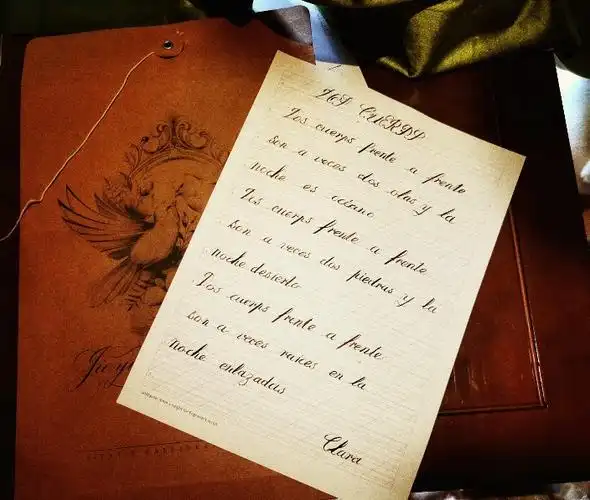 DOS CUERPOS
Dos cuerps frente a frente
son a veces dos olas y la
noche es océano
Dos cuerps frente a frente
son a veces dos piedras y la
noche desierto
Dos cuerps frente a frente
son a veces raices en la
noche enlazadas
Clara